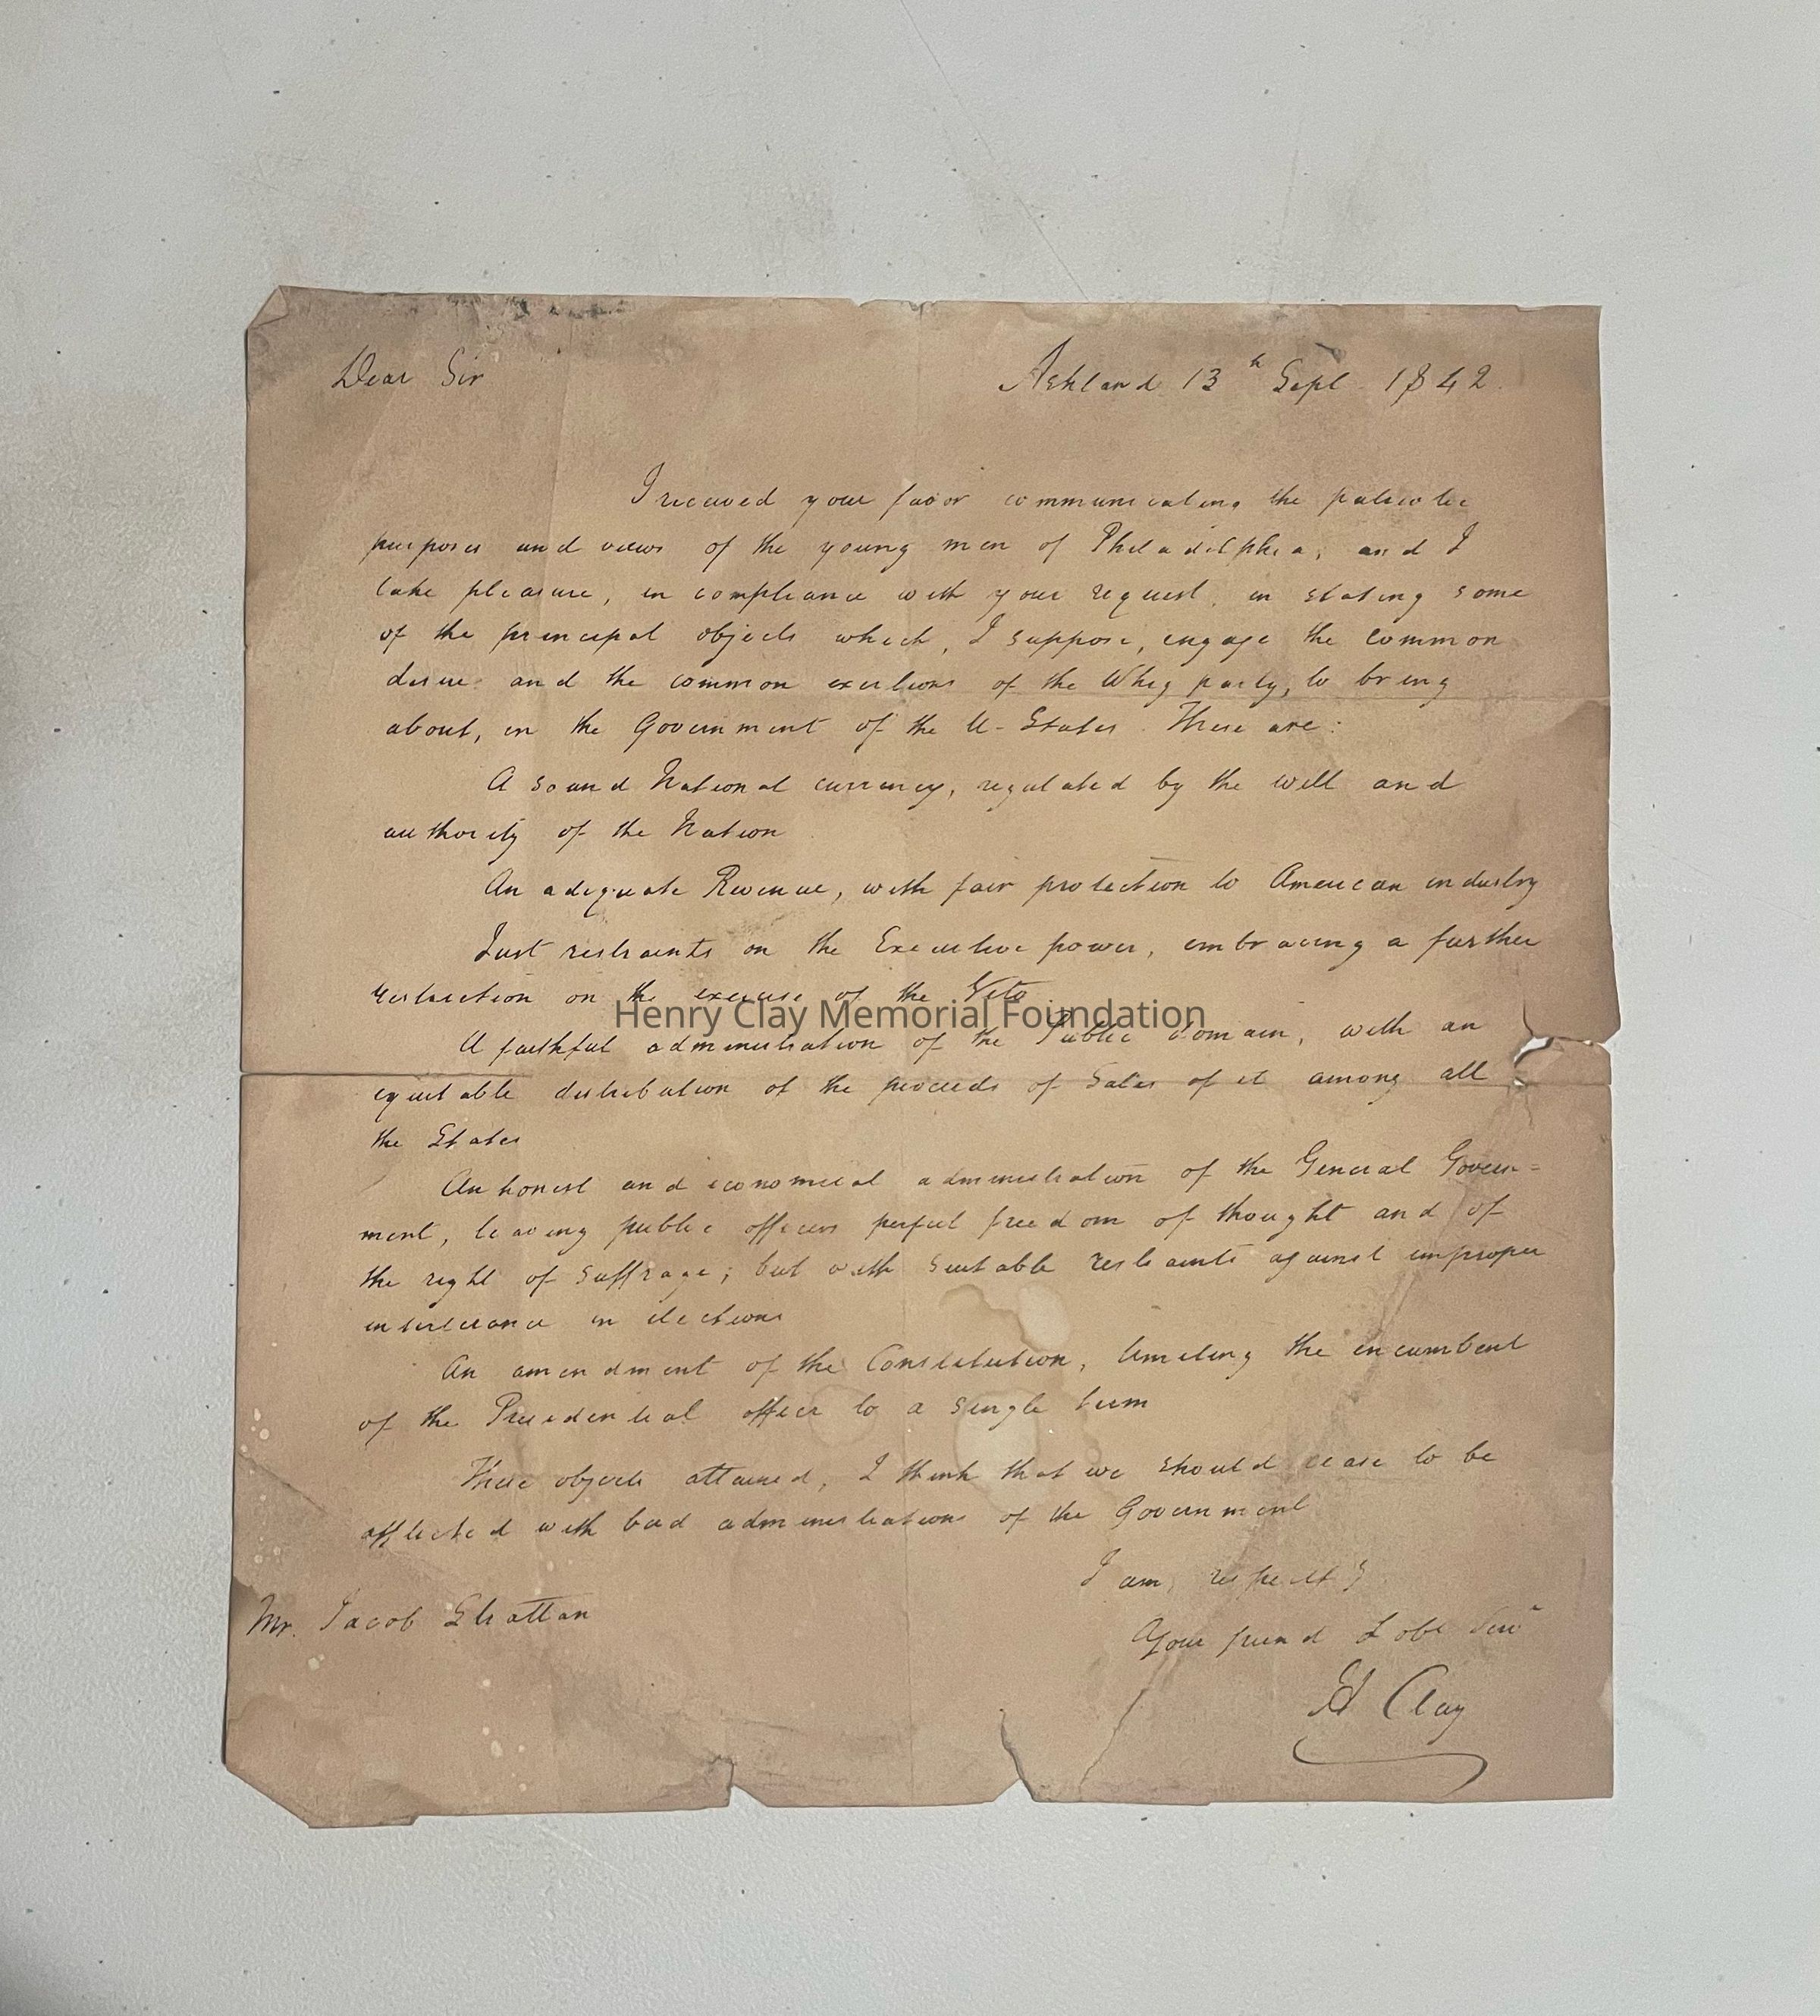 Dear Sir
Ashland 13th Sept. 1842.
I received your favor communicating the patriotic
purposes and views of the young men of Philadelphia, and I
take pleasure, in compliance with your request, in stating some
of the principal objects which, I suppose, engage the common
desire and the common exertions of the Whig party, to bring
about, in the Government of the U-States. These are:
A sound National currency, regulated by the will and
authority of the Nation
An adequate Revenue, with fair protection to American industry
Just restraints on the Executive power, embracing a further
restriction on the exercise of the Veto.
Henry Clay Memorial Foundation
A faithful administration of the Public domain, with an
equitable distribution of the proceeds of Sales of it among all
the States
An honest and economical administration of the General Govern=
ment, leaving public officers perfect freedom of thought and of
the right of suffrage; but with suitable restraints against improper
interference in elections
An amendment of the Constitution, limiting the incumbent
of the Presidential office to a single term
These objects attained, I think that we should cease to be
afflicted with bad administrations of the Government
I am, respectfy
Your friend & obt Servt
Mr. Jacob Stratton
H Clay